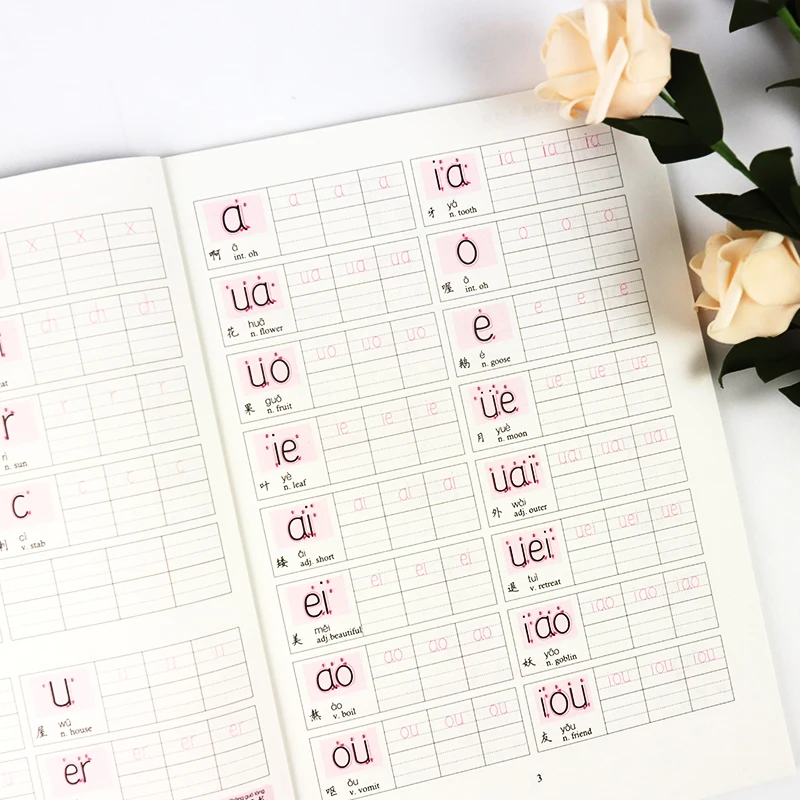 x x x
r r r r
rì
n. sun
c c c c
刺 cì
v. stab
u u u
屋 wū
n. house
er er er er
a a a a
啊 ā
int. oh
ia ia ia ia
牙 yá
n. tooth
ua ua ua ua
花 huā
n. flower
o o o o
喔 ō
int. oh
uo uo uo uo
果 guǒ
n. fruit
e e e e
鹅 é
n. goose
ie ie ie ie
叶 yè
n. leaf
üe üe üe üe
月 yuè
n. moon
ai ai ai ai
矮 ǎi
adj. short
uai uai uai uai
外 wài
adj. outer
ei ei ei ei
美 měi
adj.beautiful
uei uei uei uei
退 tuì
v. retreat
ao ao ao ao
熬 áo
v. boil
iao iao iao iao
妖 yāo
n. goblin
ou ou ou ou
呕 ǒu
v. vomit
iou iou iou iou
友 yǒu
n. friend
3